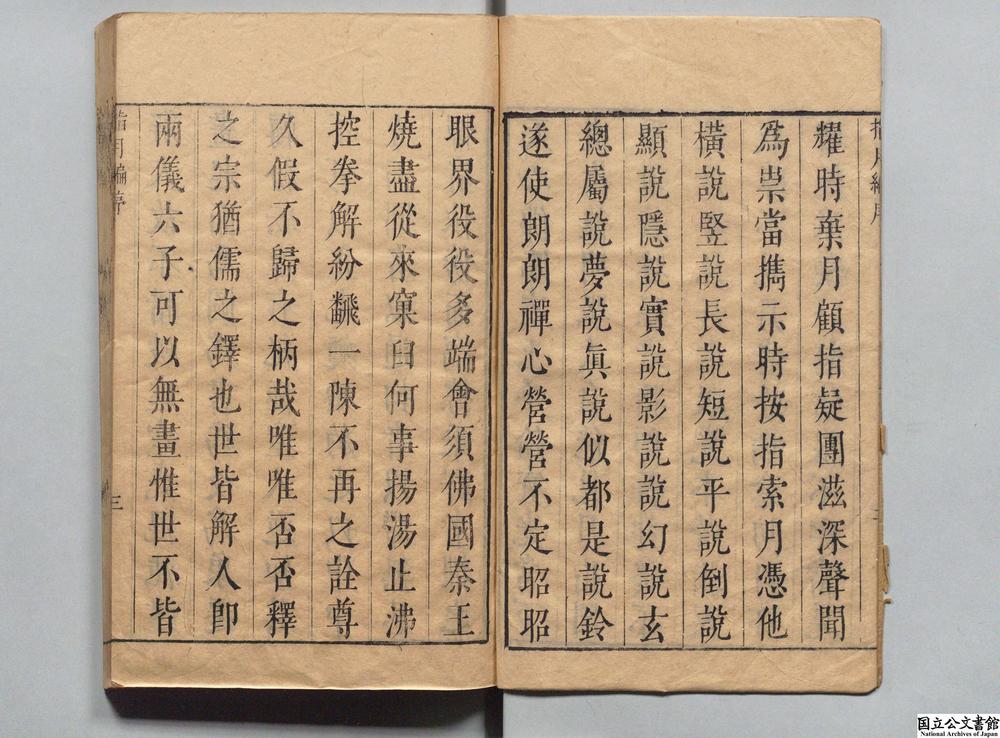 耀時棄月顧指疑團滋深聲聞
為祟當擕示時按指索月憑他
橫說竪說長說短說平說倒說
顯說隱說實說影說說幻說玄
總屬說夢說眞說似都是說鈴
遂使朗朗禪心營營不定昭昭
眼界役役多端會須佛國秦王
燒盡從來窠臼何事揚湯止沸
控拳解紛飜一陳不再之詮尊
久假不歸之柄哉唯唯否否釋
之宗猶儒之鐸也世皆解人卽
兩儀六子可以無畫惟世不皆
指月編序
三
国立公文書館
National Archives of Japan